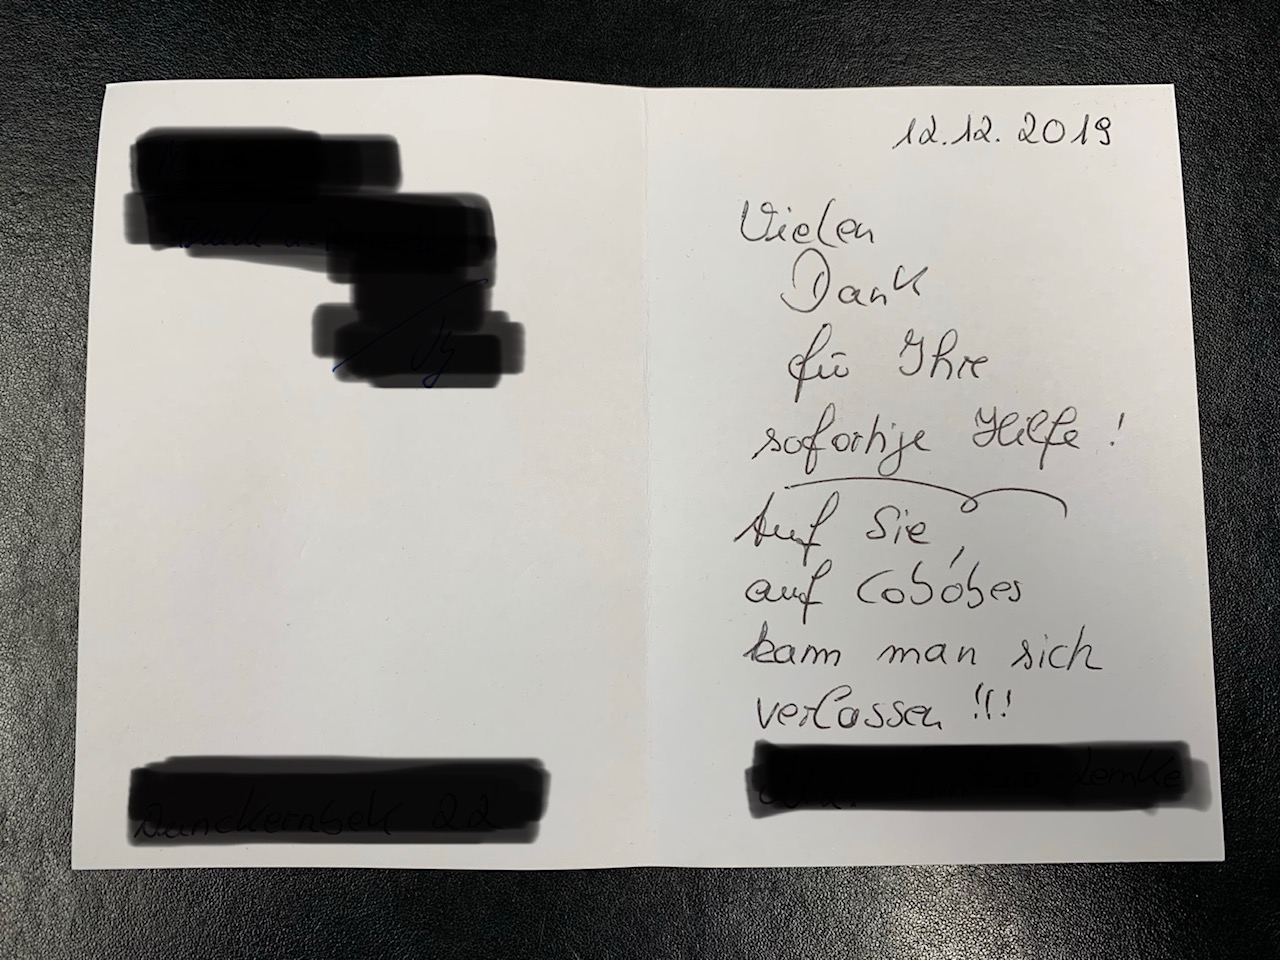 12.12.2019
Vielen
Dank
für Ihre
sofortige Hilfe!
Auf Sie,
auf Cobóbes
kann man sich
verlassen !!!